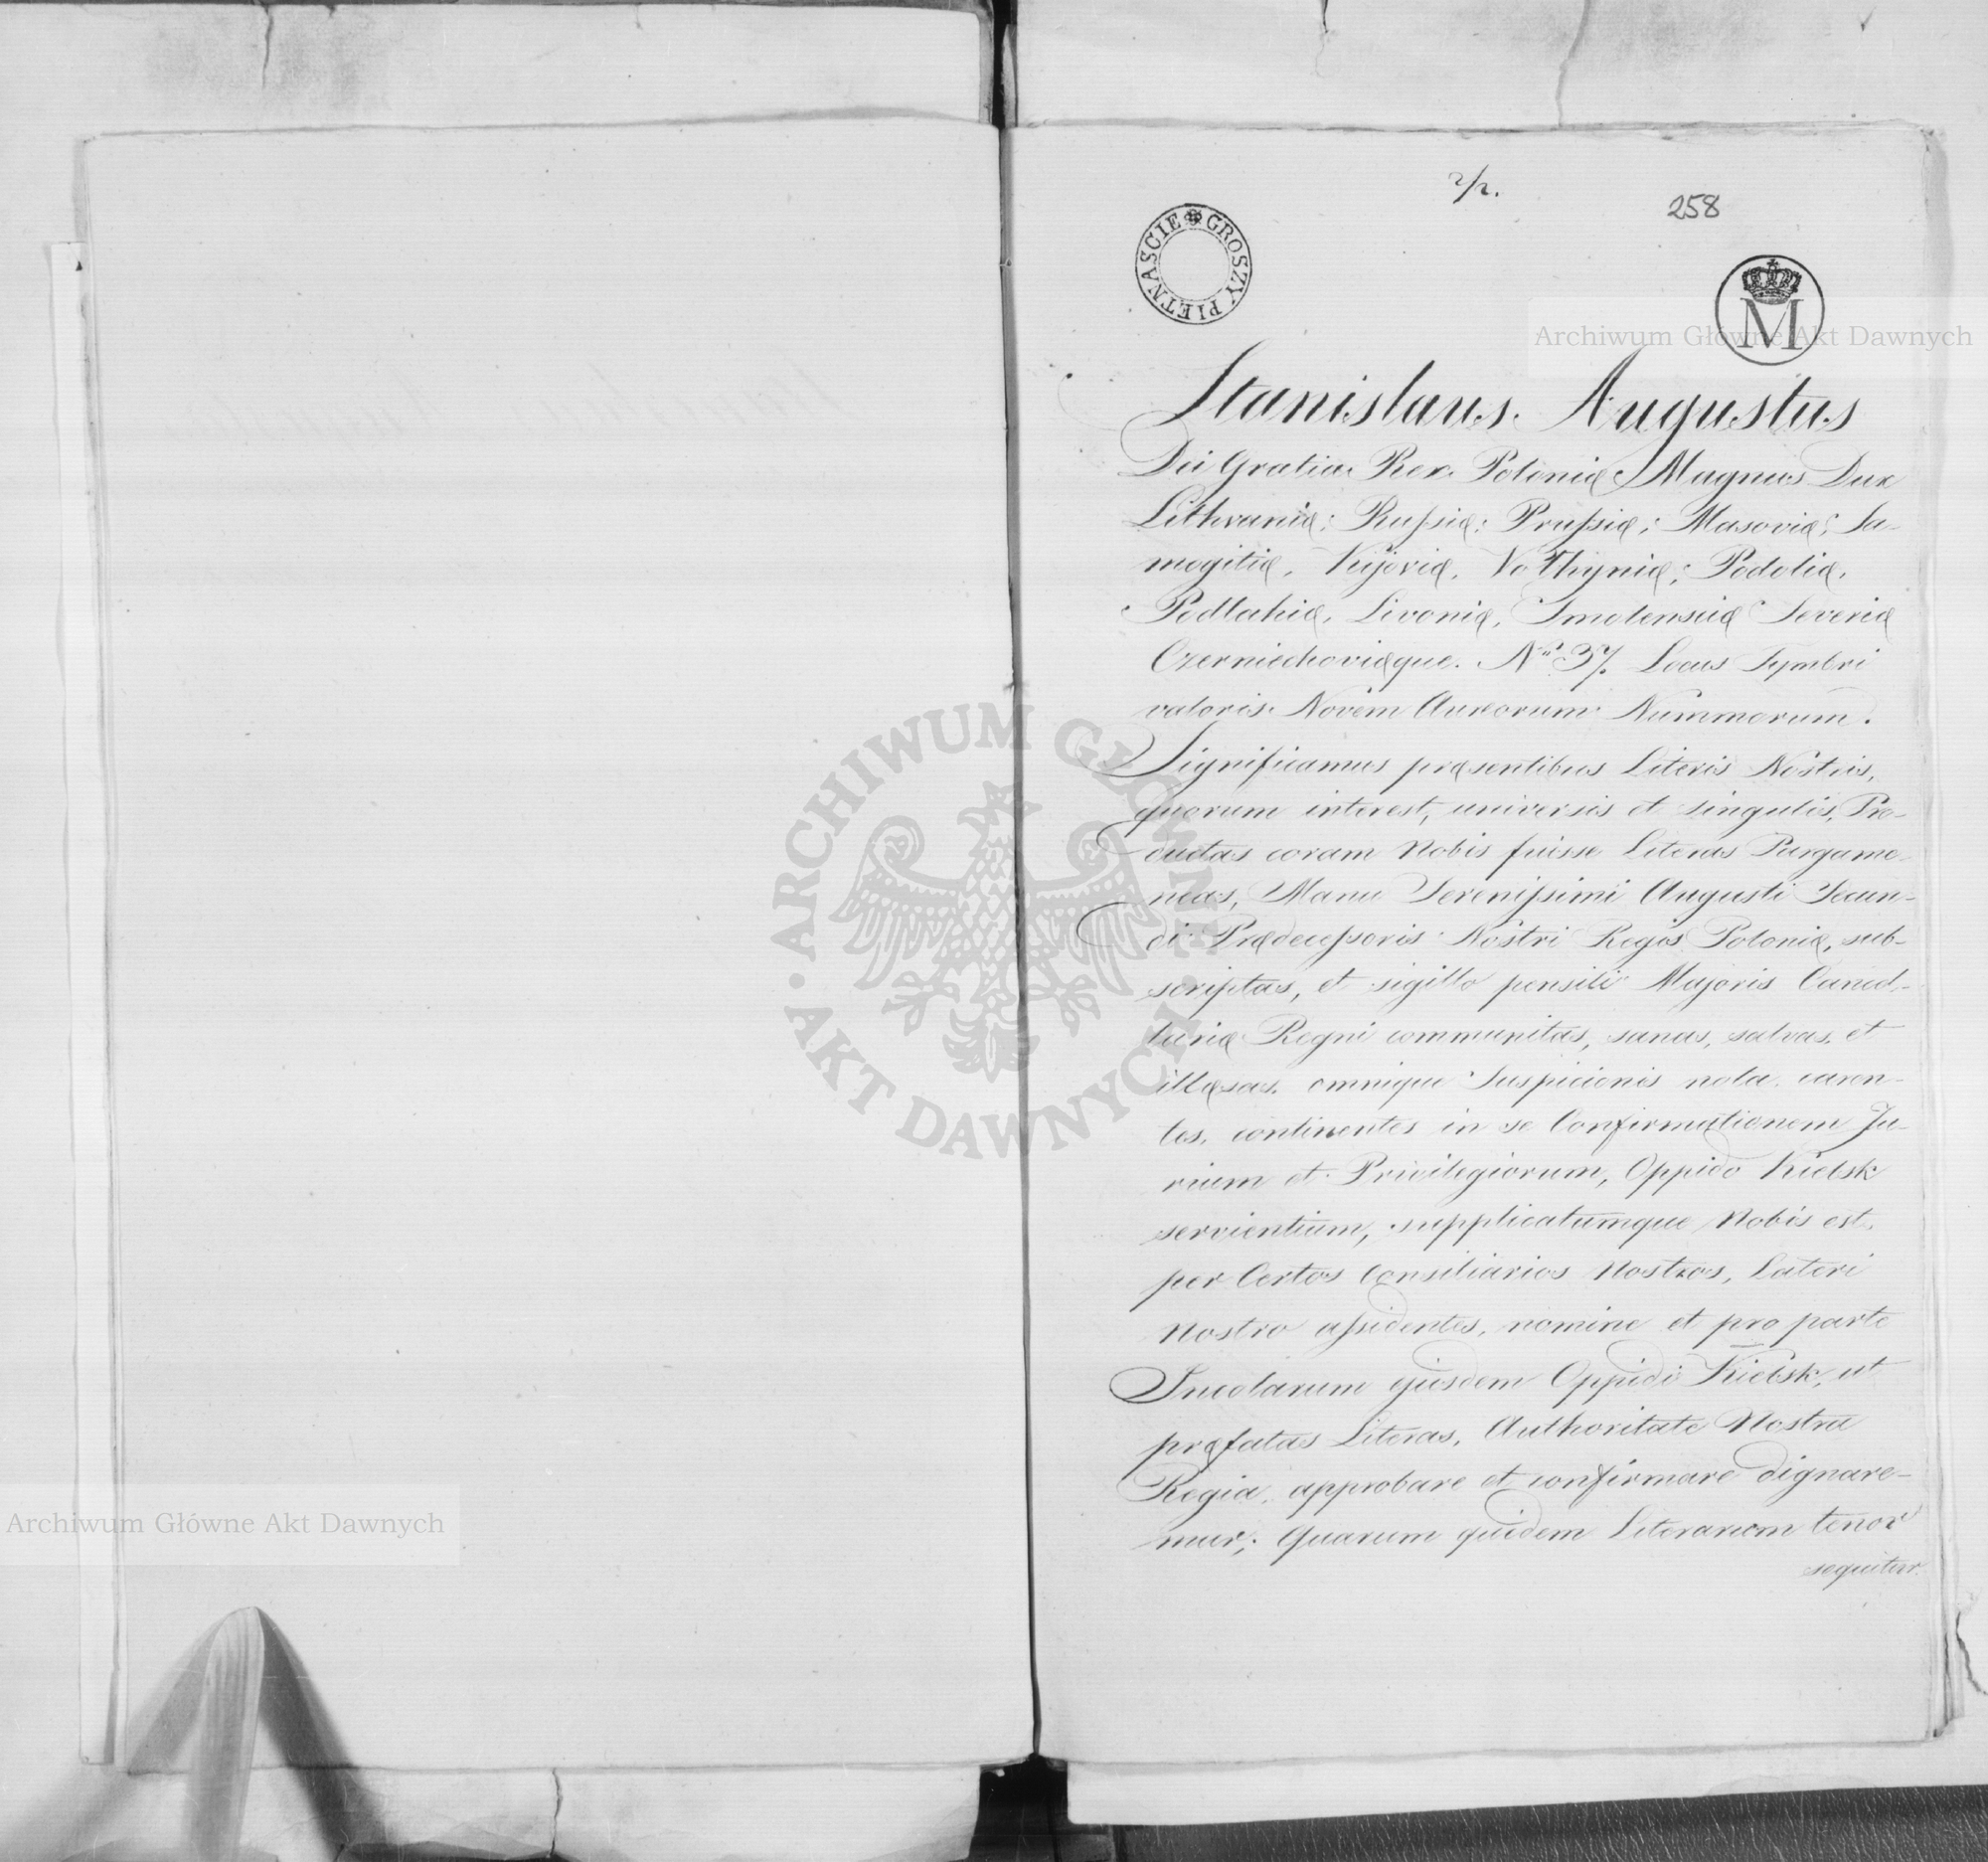 258
GROSZY PIETNASCIE
M
Archiwum Główne Akt Dawnych
Stanislaus Augustus
Dei Gratia Rex Poloniæ Magnus Dux
Lithvaniæ; Rußiæ; Prußiæ; Masoviæ; Sa-
mogitiæ, Kijoviæ, Volhyniæ; Podoliæ,
Podlahiæ, Livoniæ, Smolensciæ Severiæ
Czerniechoviæque. No. 37. Locus Tymbri
valoris Novem Aureorum Nummorum.
Significamus præsentibus Literis Nostris,
quorum interest, universis et singulis, Pro-
ductas coram Nobis fuisse Literas Pargame-
neas, Manu Serenißimi Augusti Secun-
di Prædeceßoris Nostri Regis Poloniæ, sub-
scriptas, et sigillo pensili Majoris Cancel-
lariæ Regni communitas, sanas, salvas, et
illæsas, omnique Suspicionis nota caren-
tes, continentes in se Confirmationem Ju-
rium et Privilegiorum, Oppido Kielsk
servientium, supplicatumque Nobis est,
per Certos Consiliarios Nostros, Lateri
Nostro aßidentes, nomine et pro parte
Incolarum ejusdem Oppidi Kielsk, ut
præfatas Literas, Authoritate Nostra
Regia, approbare et confirmare dignare-
mur; Quarum quidem Literarum tenor
sequitur.
ARCHIWUM GŁÓWNE AKT DAWNYCH
Archiwum Główne Akt Dawnych